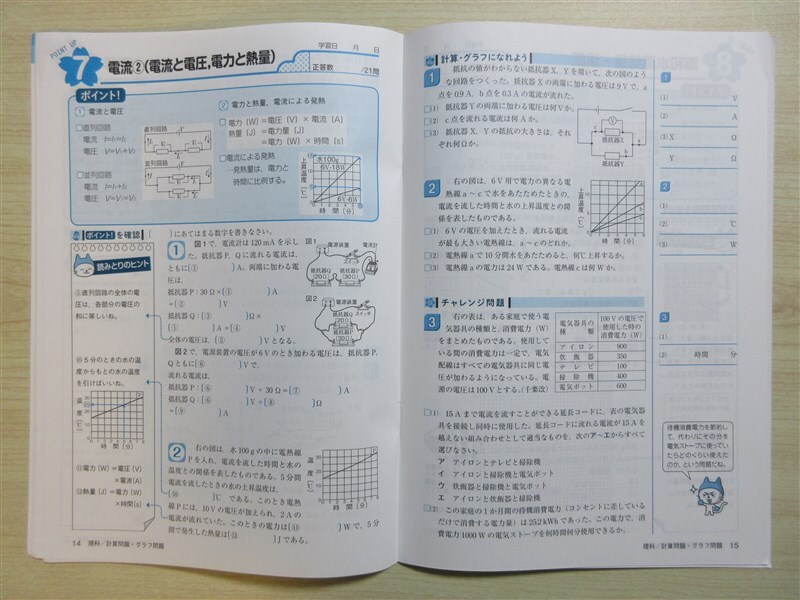 POINT UP
7
電流②(電流と電圧,電力と熱量)
学習日 月 日
正答数 /21問
ポイント!
① 電流と電圧
□直列回路
電流 I=I₁=I₂
電圧 V=V₁+V₂
□並列回路
電流 I=I₁+I₂
電圧 V=V₁=V₂
直列回路
並列回路
② 電力と熱量,電流による発熱
□ 電力 (W) =電圧 (V) × 電流 (A)
熱量 (J) =電力量 (J)
=電力 (W) × 時間 (s)
□電流による発熱
…発熱量は,電力と
時間に比例する。
水100g
6V-18W
6V-6W
上昇温度(℃)
時間(分)
ポイント!を確認
読みとりのヒント
⑤直列回路の全体の電
圧は,各部分の電圧の
和に等しいね。
⑩5分のときの水の温
度からもとの水の温度
を引けばいいね。
時間(分)
⑪電力(W)=電圧(V)
×電流(A)
⑫熱量(J)=電力(W)
×時間(s)
( )にあてはまる数字を書きなさい。
1 図1で,電流計は120mAを示し
た。抵抗器P,Qに流れる電流は,
ともに(① )A。両端に加わる電
圧は,
抵抗器P:30Ω×(① )A
=(② )V
抵抗器Q:(③ )Ω×
(① )A=(④ )V
全体の電圧は,(⑤ )Vとなる。
図2で,電源装置の電圧が6Vのとき加わる電圧は,抵抗器P,
Qとも(⑥ )Vで,
流れる電流は,
抵抗器P:(⑥ )V÷30Ω=(⑦ )A
抵抗器Q:(⑥ )V÷(⑧ )Ω
=(⑨ )A
図1
電源装置 電流計
スイッチ
抵抗器Q 抵抗器P
(20Ω) (30Ω)
図2
電源装置
抵抗器Q スイッチ
(20Ω)
抵抗器P
(30Ω)
2 右の図は,水100gの中に電熱線
Pを入れ,電流を流した時間と水の
温度との関係を表したものである。5分間
電流を流したときの水の上昇温度は,
(⑩ )℃である。このとき電熱
線Pには,10Vの電圧が加えられ,2Aの
電流が流れていた。このときの電力は(⑪ )Wで,5分
間で発生した熱量は(⑫ )Jである。
時間(分)
14 理科/計算問題・グラフ問題
計算・グラフになれよう
1 抵抗の値がわからない抵抗器X,Yを用いて,次の図のよう
な回路をつくった。抵抗器Xの両端に加わる電圧は9Vで,a
点を0.9A,b点を0.3Aの電流が流れた。
□(1) 抵抗器Yの両端に加わる電圧は何Vか。
□(2) c点を流れる電流は何Aか。
□(3) 抵抗器X,Yの抵抗の大きさは,それ
ぞれ何Ωか。
抵抗器X
抵抗器Y
2 右の図は,6V用で電力の異なる電
熱線a~cで水をあたためたときの,
電流を流した時間と水の上昇温度との関
係を表したものである。
□(1) 6Vの電圧を加えたとき,流れる電流
が最も大きい電熱線は,a~cのどれか。
□(2) 電熱線aで10分間水をあたためると,何℃上昇するか。
□(3) 電熱線aの電力は24Wである。電熱線cは何Wか。
上昇温度(℃)
時間(分)
チャレンジ問題
3 右の表は,ある家庭で使う電
気器具の種類と,消費電力(W)
をまとめたものである。使用して
いる間の消費電力は一定で,電気
配線はすべての電気器具に同じ電
圧が加わるようになっている。電
源の電圧は100Vとする。(千葉改)
電気器具の種類 100Vの電圧で使用した時の消費電力(W)
アイロン 900
炊飯器 350
テレビ 100
掃除機 400
電気ポット 600
□(1) 15Aまで電流を流すことができる延長コードに,表の電気器
具を接続し同時に使用した。延長コードに流れる電流が15Aを
越えない組み合わせとして適当なものを,次のア~エからすべて
選びなさい。
ア アイロンとテレビと掃除機
イ アイロンと掃除機と電気ポット
ウ 炊飯器と掃除機と電気ポット
エ アイロンと炊飯器と掃除機
□(2) この家庭の1か月間の待機消費電力(コンセントに差している
だけで消費する電力量)は25.2kWhであった。この電力で,消
費電力1000Wの電気ストーブを何時間何分使用できるか。
1
(1) V
(2) A
(3) X Ω
Y Ω
2
(1)
(2) ℃
(3) W
3
(1)
(2) 時間 分
待機消費電力を節約し
て,代わりにその分を
電気ストーブに使ってい
たらどのくらい使えた
のか,という問題だね。
理科/計算問題・グラフ問題 15